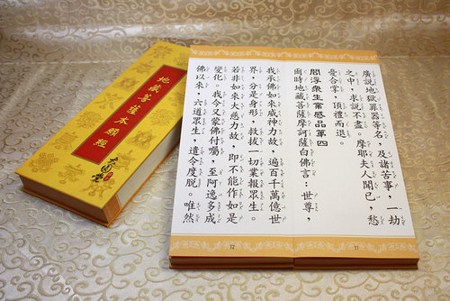 廣說地獄罪器等名，及諸苦事，一劫
之中，求說不盡。摩耶夫人聞已，愁
憂合掌，頂禮而退。
閻浮眾生業感品第四
爾時地藏菩薩摩訶薩白佛言：世尊，
我承佛如來威神力故，遍百千萬億世
界，分是身形，救拔一切業報眾生。
若非如來大慈力故，即不能作如是
變化。我今又蒙佛付囑，至阿逸多成
佛以來，六道眾生，遣令度脫。唯然
地藏菩薩本願經